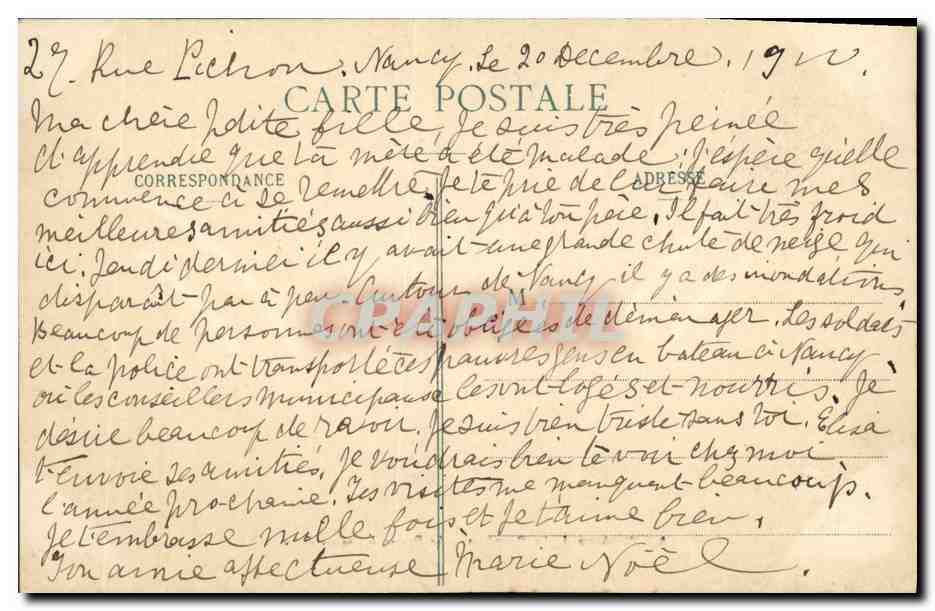 27. Rue Pichon. Nancy. Le 20 Decembre. 19
CARTE POSTALE
Ma chère petite fille, Je suis très peinée
d'apprendre que ta mère a été malade. J'espère qu'elle
CORRESPONDANCE
ADRESSE
commence à se remettre. Je te prie de lui faire mes
meilleures amitiés aussi bien qu'à ton père. Il fait très froid
ici. Jeudi dernier il y avait une grande chute de neige qui
disparaît par à peu. Autour de Nancy il y a des inondations
M
CPAPHIL
Beaucoup de personnes ont été obligées de déménager. Les soldats
et la police ont transporté ces pauvres gens en bateau à Nancy
où les conseillers municipaux les ont logés et nourris. Je
désire beaucoup de ravoir. Je suis bien triste sans toi. Elisa
t'envoie ses amitiés. Je voudrais bien te voir chez moi
l'année prochaine. Tes visites me manquent beaucoup.
Je t'embrasse mille fois et Je t'aime bien.
Ton amie affectueuse Marie Noël.